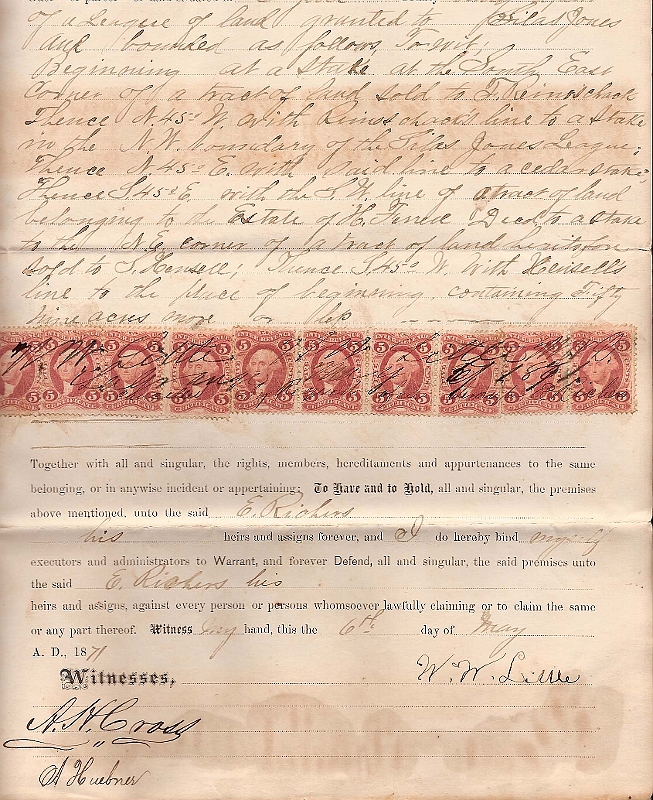 of a League of land granted to Silas Jones
and bounded as follows, Towit;
Beginning at a Stake at the South East
Corner of a tract of land sold to F. Reinschack
Thence N. 45° W. with Reinschack's line to a stake
in the N.W. boundary of the Silas Jones League;
Thence N. 45° E. with said line to a cedar stake;
Thence S. 45° E. with the S.W. line of a tract of land
belonging to the Estate of H. Decd, to a stake
to the N.E. corner of a tract of land
sold to Hensell; Thence S. 45° W. with Hensell's
line to the place of beginning, containing Fifty
Nine acres more or less
5 5 5 5 5 5 5 5 5
W. W. Little
Together with all and singular, the rights, members, hereditaments and appurtenances to the same
belonging, or in anywise incident or appertaining: To Have and to Hold, all and singular, the premises
above mentioned, unto the said E. Richers
his heirs and assigns forever, and I do hereby bind myself
executors and administrators to Warrant, and forever Defend, all and singular, the said premises unto
the said E. Richers his
heirs and assigns, against every person or persons whomsoever lawfully claiming or to claim the same
or any part thereof. Witness my hand, this the 6th day of May
A. D., 1871
Witnesses, W. W. Little
A. H. Cross
A Huebner